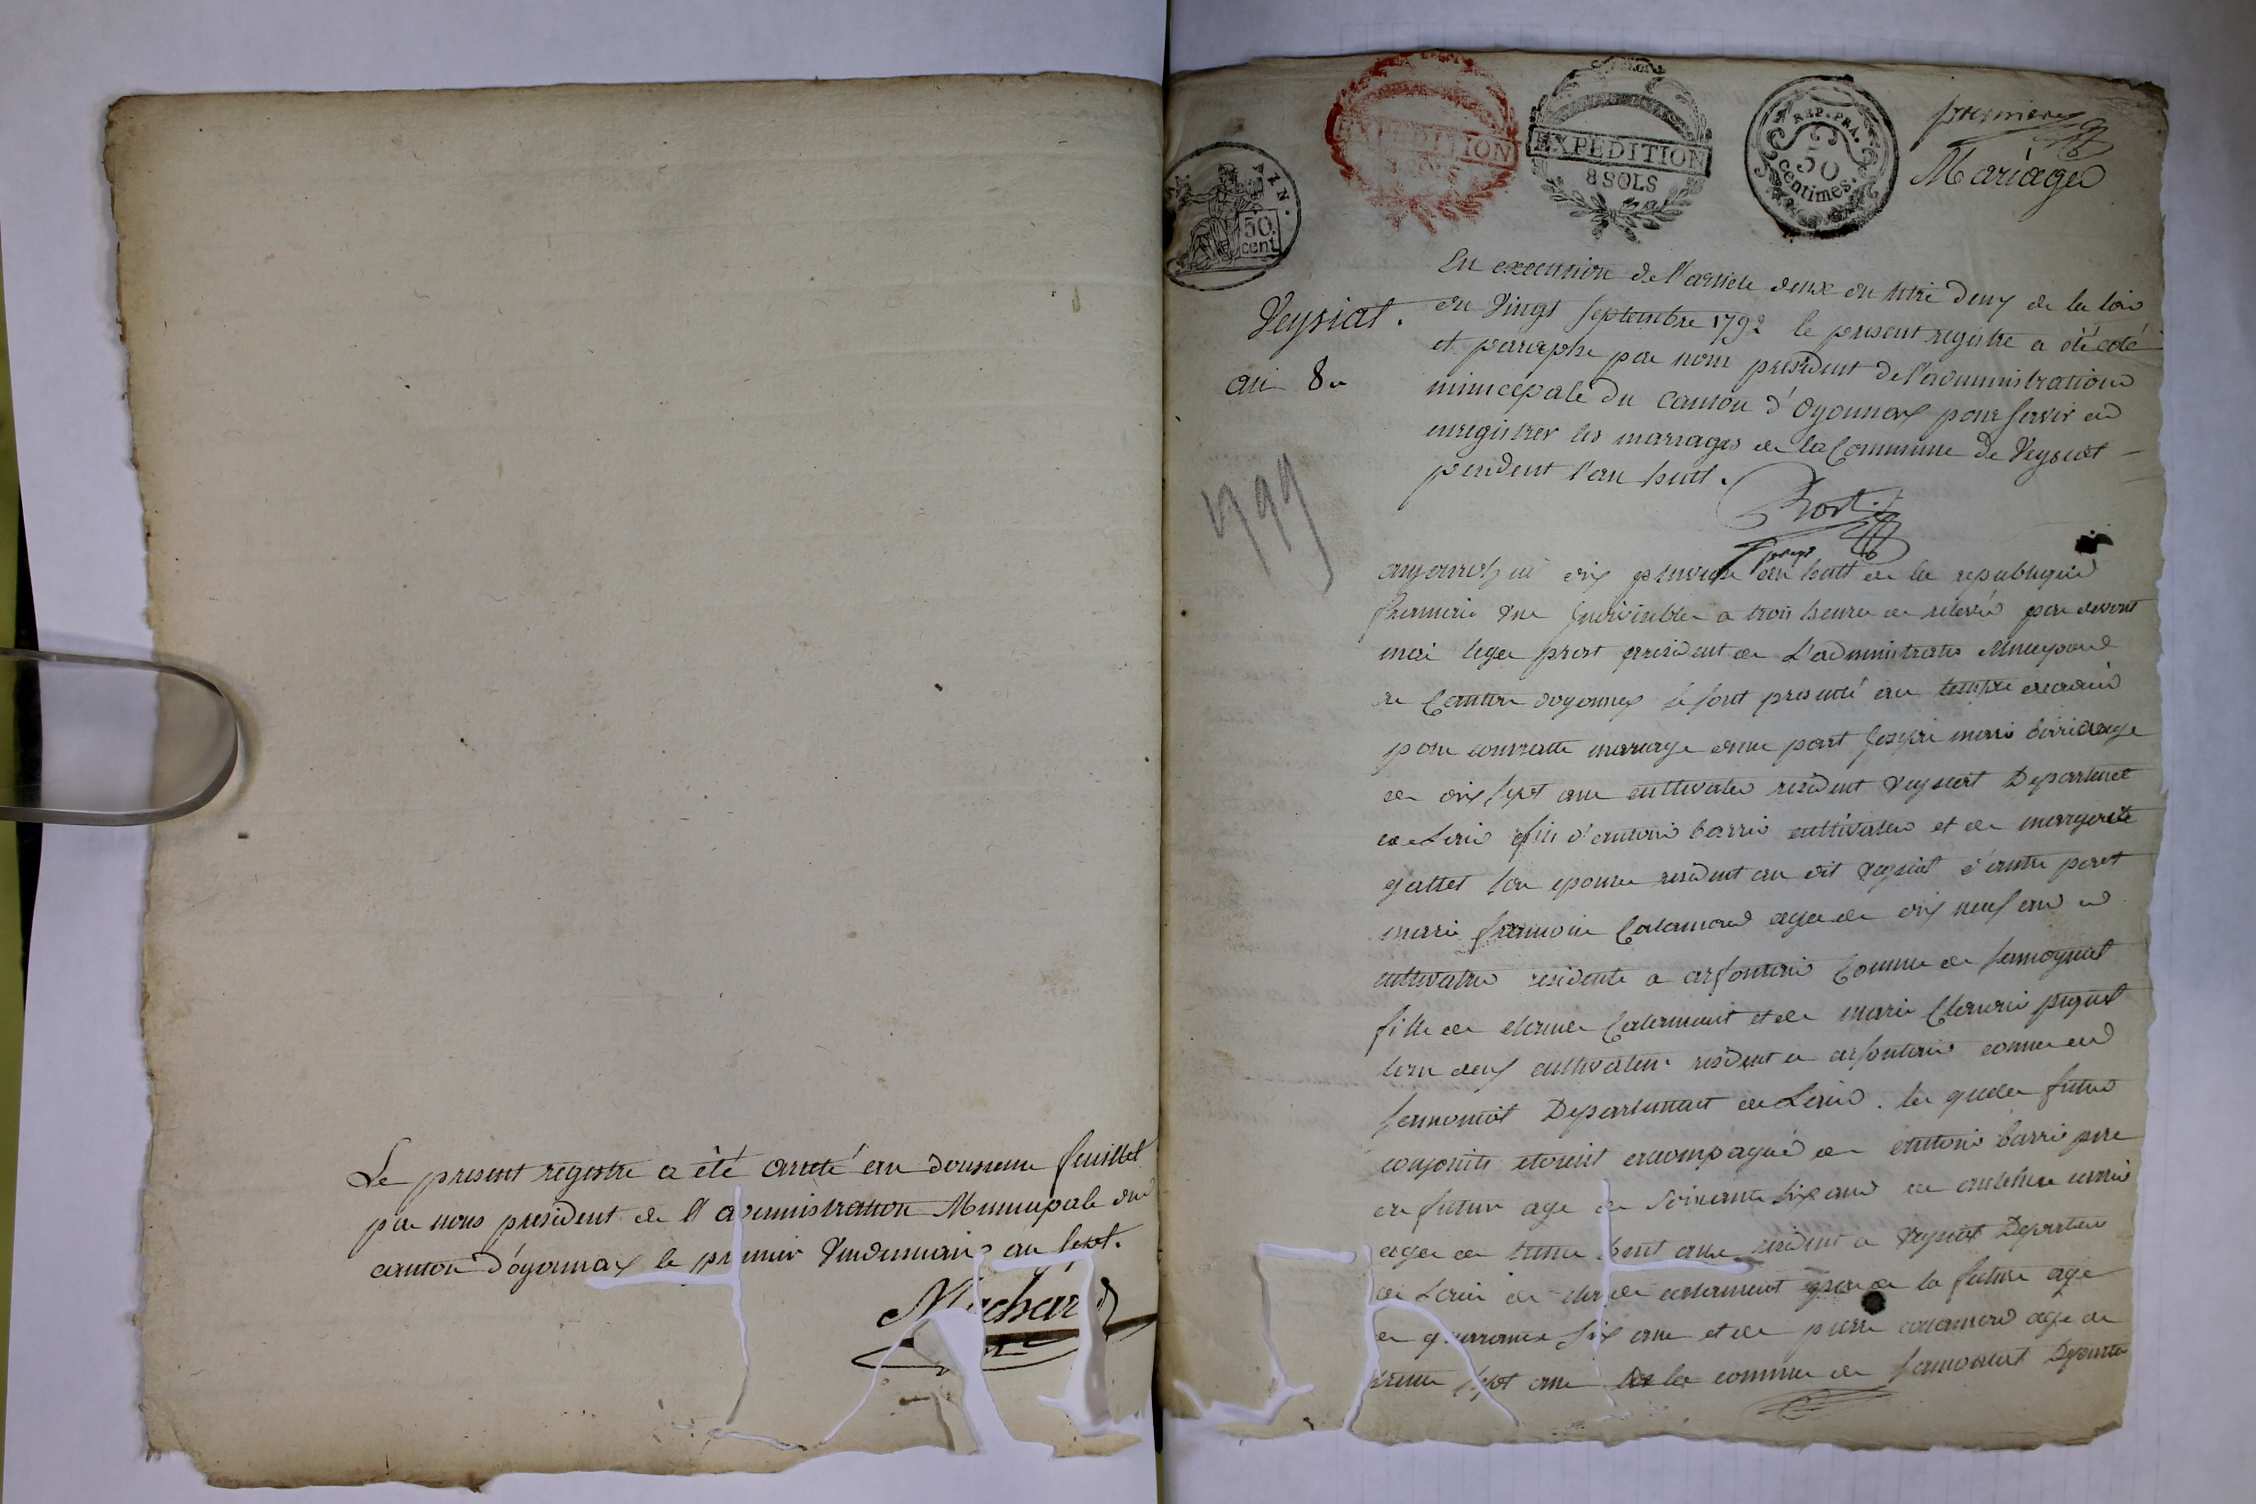 Le present registre a été arreté au dousieme feuillet
par nous president de l'administration Municipale du
canton d'oyonnax le premier Vendemiaire an sept.
Machard
AIN.
50.
cent
EXPEDITION
EXPEDITION
8 SOLS
REP. FRA.
50
centimes.
premier
Mariages
Veysiat.
an 8e
1799
En execution de l'article deux du titre deux de la loi
du Vingt Septembre 1792 le present registre a été coté
et paraphe par nous president de l'administration
municipale du Canton d'Oyonnax pour servir a
enregistrer les mariages de la Commune de Veysiat
pendent l'an huit.
Prost
aujourdhui dix pluviose an huit de la republique
francaise une indivisible a trois heure de relevé par devant
moi leger prost president de L'administration
de Canton doyonnax se sont presenté au temple decadaire
pour contracter mariage d'une part joseph marie
de dix sept ans cultivateur resident Veysiat Departement
de Lain fils d'antoine cultivateur et de margerite
gattet son epouse resident au dit Veysiat d'autre part
marie francoise agee de dix neuf ans
cultivatrice residente a arfontaine Commune de
fille de claude et de marie
tous deux cultivateurs resident a arfontaine commune de
Departement de Lain. les quels futur
conjoints etoient accompagné de antoine barri pere
du futur age de soixante six ans de
age de trente huit ans resident a Veysiat Departement
de Lain de claude pere de la future age
de quarante six ans et de pierre age de
trente sept ans de la commune de